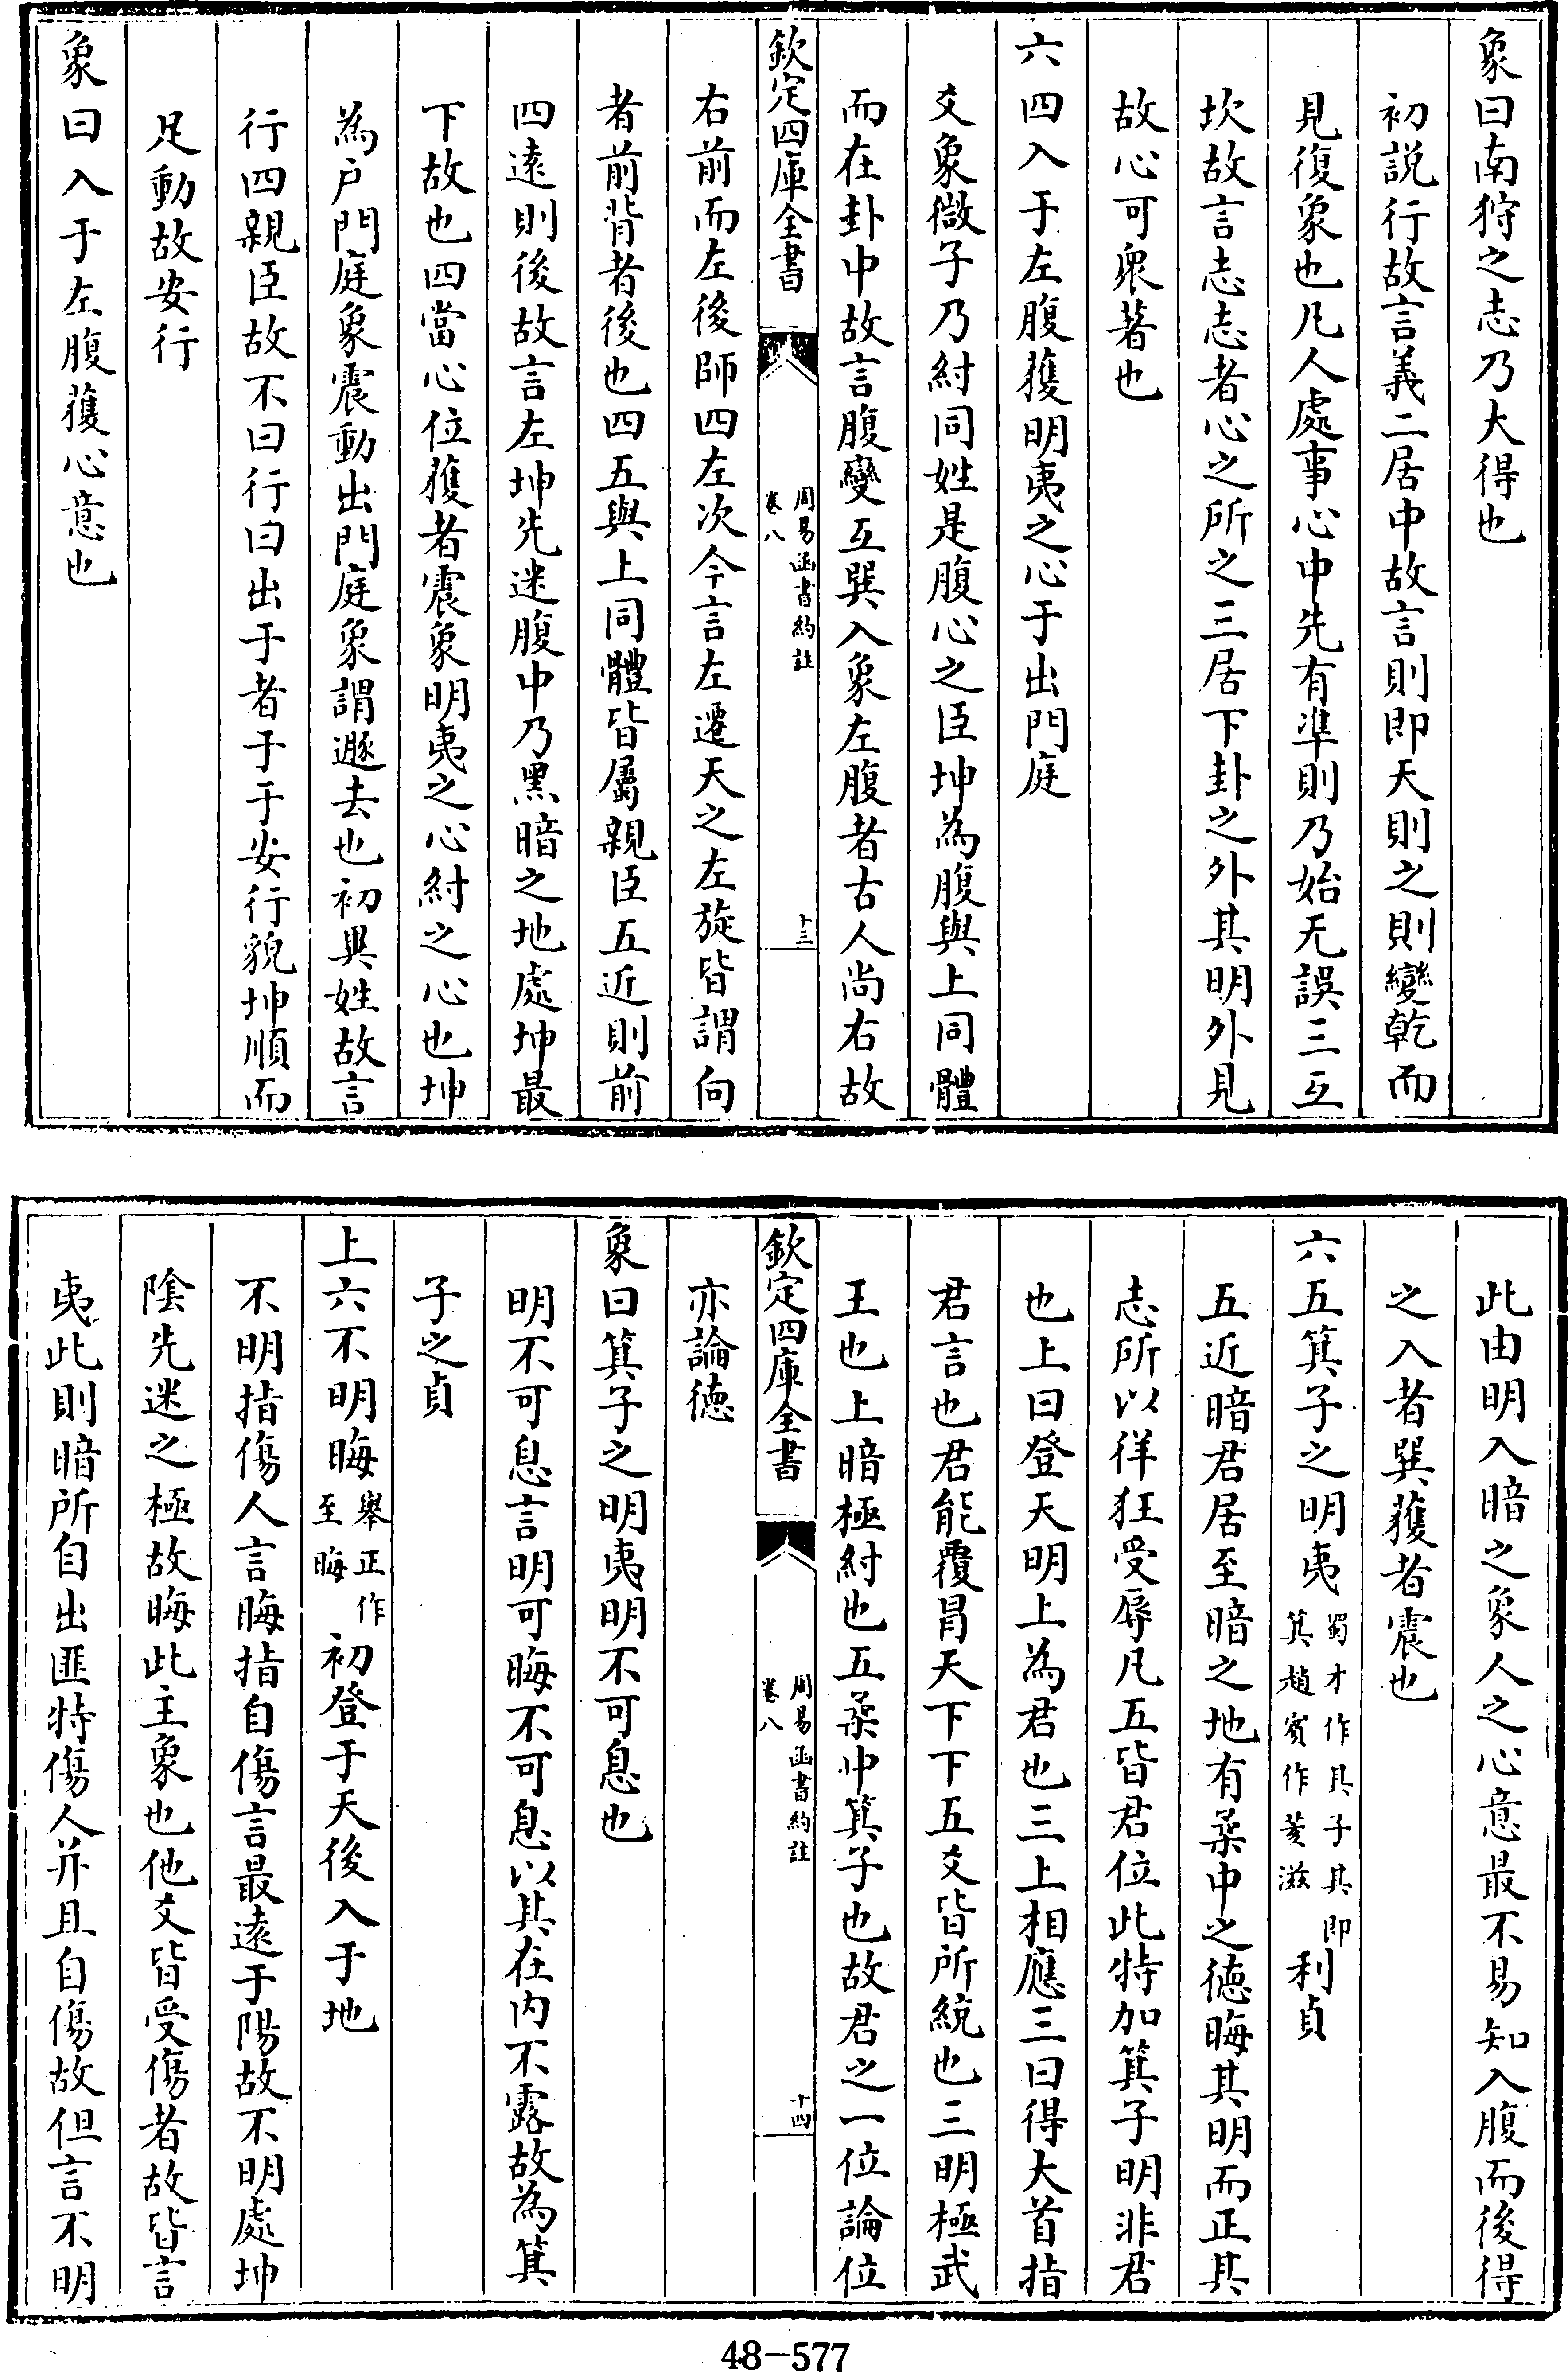 象曰南狩之志乃大得也
初説行故言義二居中故言則即天則之則變乾而
見復象也凡人處事心中先有準則乃始无誤三互
坎故言志志者心之所之三居下卦之外其明外見
故心可衆著也
六四入于左腹獲明夷之心于出門庭
爻象微子乃紂同姓是腹心之臣坤為腹與上同體
而在卦中故言腹變互巽入象左腹者古人尚右故
欽定四庫全書
周易函書約註
卷八
十三
右前而左後師四左次今言左遷天之左旋皆謂向
者前背者後也四五與上同體皆屬親臣五近則前
四遠則後故言左坤先迷腹中乃黑暗之地處坤最
下故也四當心位獲者震象明夷之心紂之心也坤
為戸門庭象震動出門庭象謂遯去也初異姓故言
行四親臣故不曰行曰出于者于于安行貌坤順而
足動故安行
象曰入于左腹獲心意也
此由明入暗之象人之心意最不易知入腹而後得
之入者巽獲者震也
六五箕子之明夷蜀才作其子其即
箕趙賓作荄滋利貞
五近暗君居至暗之地有柔中之德晦其明而正其
志所以徉狂受辱凡五皆君位此特加箕子明非君
也上曰登天明上為君也三上相應三曰得大首指
君言也君能覆冒天下下五爻皆所統也三明極武
王也上暗極紂也五柔中箕子也故君之一位論位
欽定四庫全書
周易函書約註
卷八
十四
亦論德
象曰箕子之明夷明不可息也
明不可息言明可晦不可息以其在内不露故為箕
子之貞
上六不明晦舉正作
至晦初登于天後入于地
不明指傷人言晦指自傷言最遠于陽故不明處坤
陰先迷之極故晦此主象也他爻皆受傷者故皆言
夷此則暗所自出匪特傷人并且自傷故但言不明
48-577